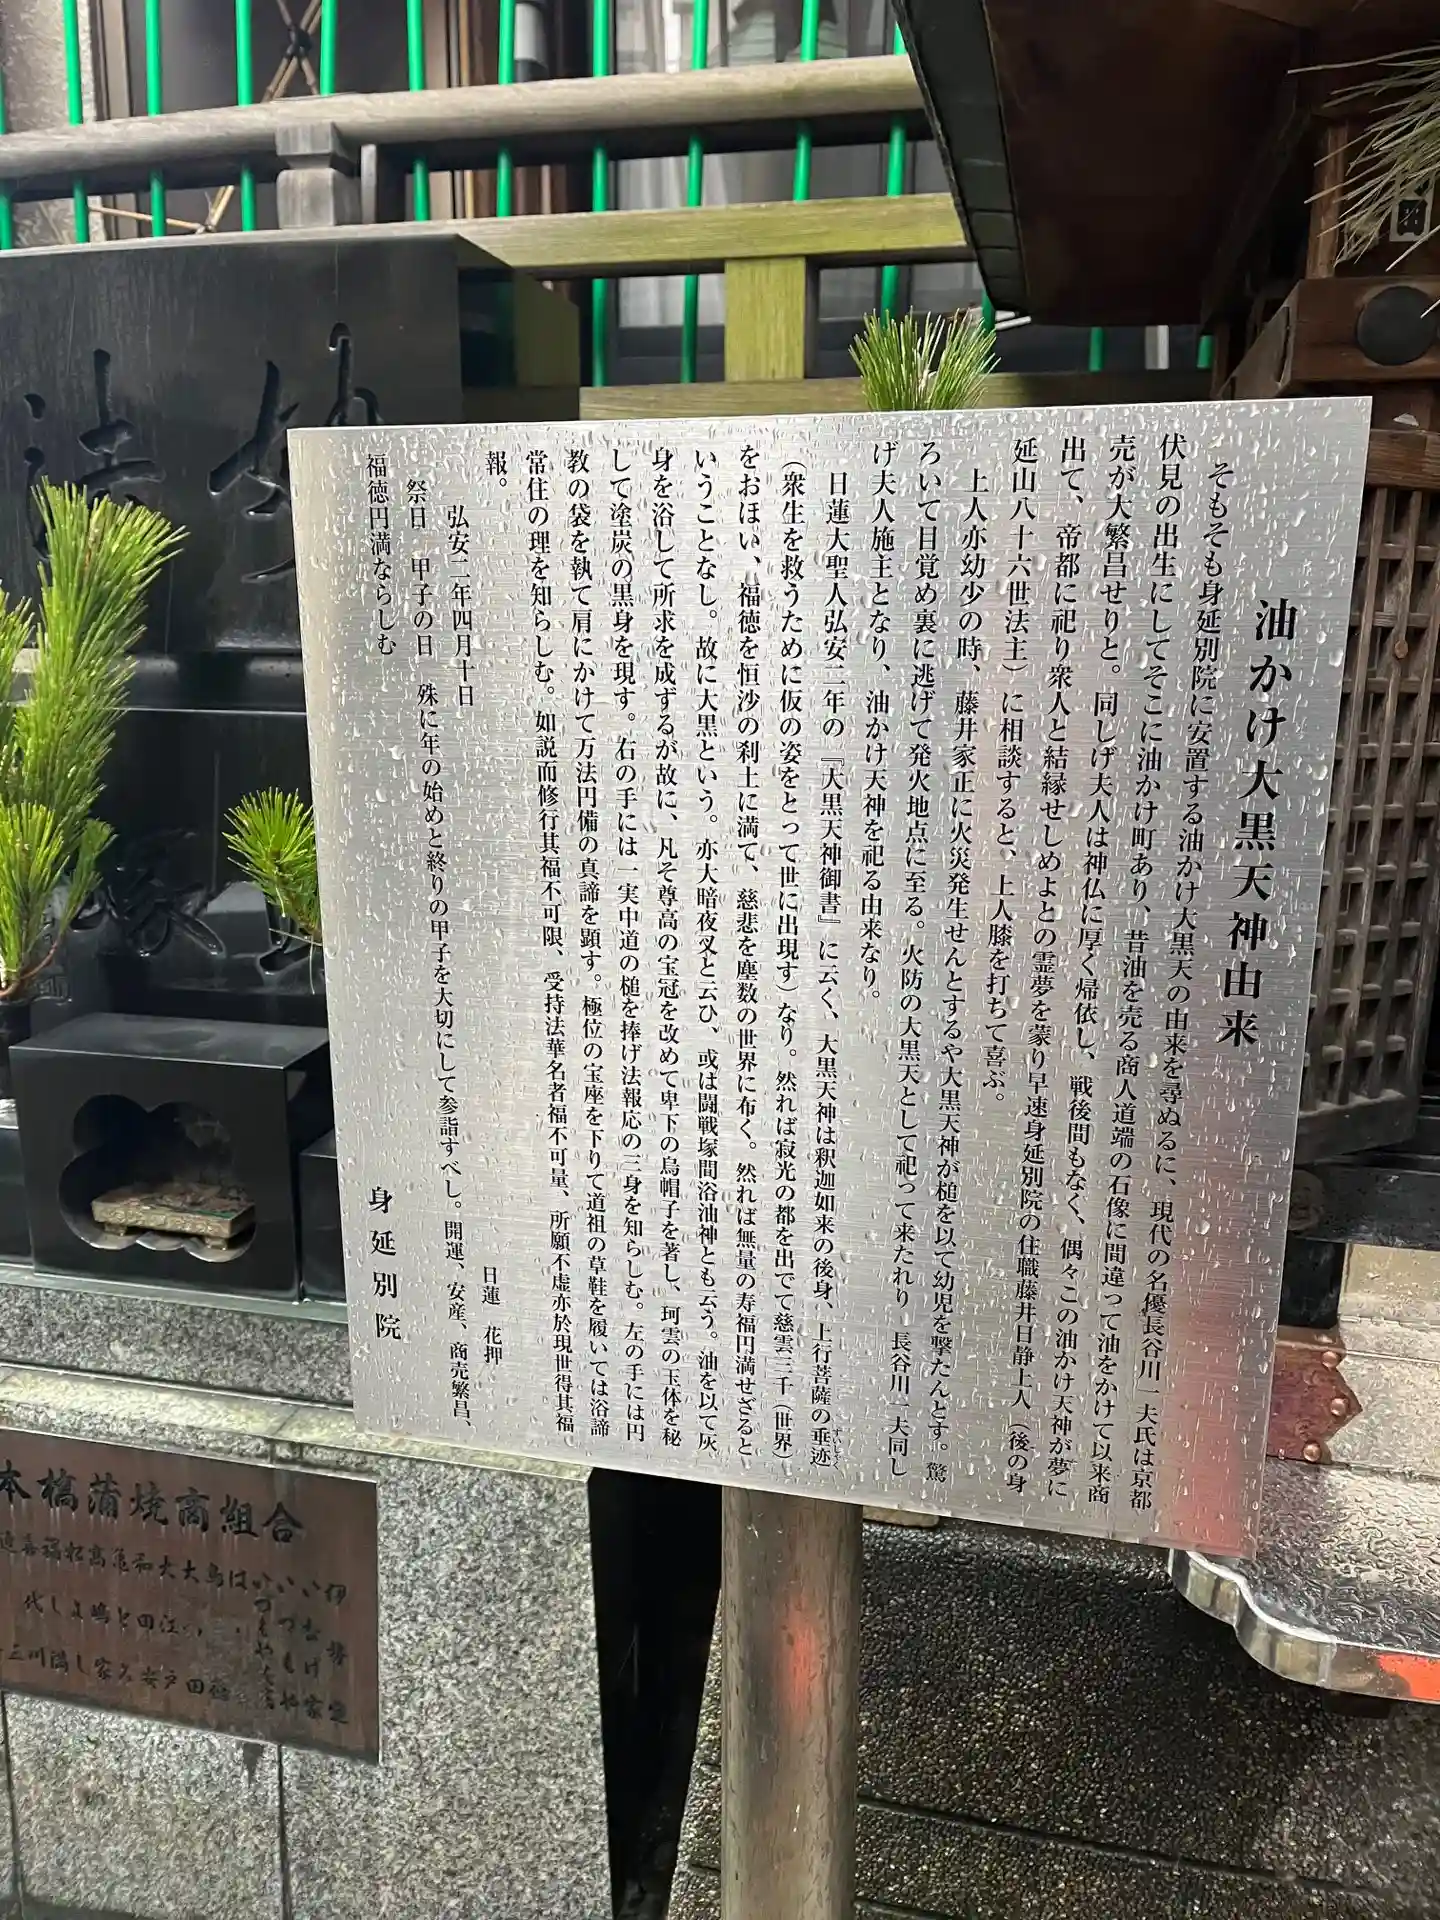 油かけ大黒天神由来
そもそも身延別院に安置する油かけ大黒天の由来を尋ぬるに、現代の名優長谷川一夫氏は京都
伏見の出生にしてそこに油かけ町あり、昔油を売る商人道端の石像に間違って油をかけて以来商
売が大繁昌せりと。同しげ夫人は神仏に厚く帰依し、戦後間もなく、偶々この油かけ天神が夢に
出て、帝都に祀り衆人と結縁せしめよとの霊夢を蒙り早速身延別院の住職藤井日静上人（後の身
延山八十六世法主）に相談すると、上人膝を打ちて喜ぶ。
上人亦幼少の時、藤井家正に火災発生せんとするや大黒天神が槌を以て幼児を撃たんとす。驚
ろいて目覚め裏に逃げて発火地点に至る。火防の大黒天として祀って来たれり 長谷川一夫同し
げ夫人施主となり、油かけ天神を祀る由来なり。
日蓮大聖人弘安二年の『大黒天神御書』に云く、大黒天神は釈迦如来の後身、上行菩薩の垂迹
（衆生を救うために仮の姿をとって世に出現す）なり。然れば寂光の都を出でて慈雲三千（世界）
をおほい、福徳を恒沙の刹土に満て、慈悲を塵数の世界に布く。然れば無量の寿福円満せざると
いうことなし。故に大黒という。亦大暗夜叉と云ひ、或は闘戦塚間浴油神とも云う。油を以て灰
身を浴して所求を成ずるが故に、凡そ尊高の宝冠を改めて卑下の烏帽子を著し、珂雲の玉体を秘
して塗炭の黒身を現す。右の手には一実中道の槌を捧げ法報応の三身を知らしむ。左の手には円
教の袋を執て肩にかけて万法円備の真諦を顕す。極位の宝座を下りて道祖の草鞋を履いては浴諦
常住の理を知らしむ。如説而修行其福不可限、受持法華名者福不可量、所願不虚亦於現世得其福
報。
日蓮 花押
弘安二年四月十日
祭日 甲子の日 殊に年の始めと終りの甲子を大切にして参詣すべし。開運、安産、商売繁昌、
福徳円満ならしむ
身延別院
本橋蒲焼商組合